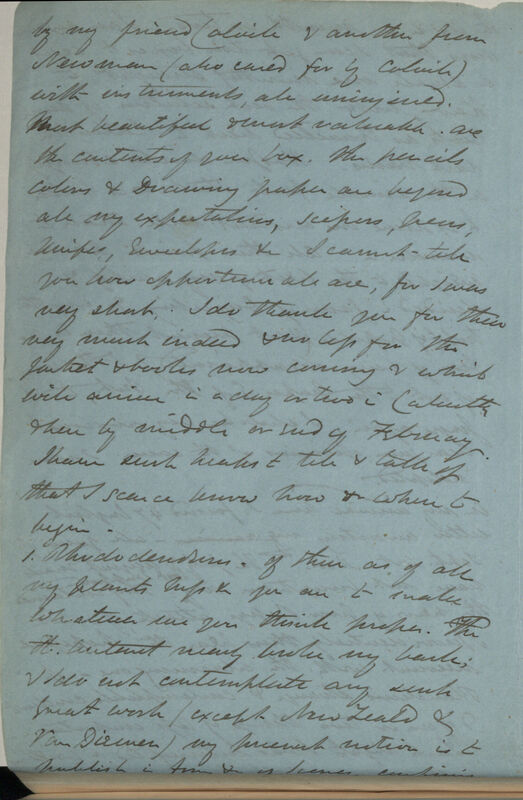 by my friend Colvile & another from
Newman (also cared for by Colvile)
with instruments, all uninjured.
Most beautiful & most valuable are
the contents of your box. The pencils
colors & Drawing paper are beyond
all my expectations, scissors, pens,
knifes, Envelopes &c I cannot tell
you how opportune all are, for I was
very short. I do thank you for them
very much indeed & no less for the
jacket & books now coming & which
will arrive in a day or two in Calcutta
& here by middle or end of February.
I have such heaps to tell & talk of
that I scarce know how & where to
begin.
1. Rhododendrons. of them as of all
my plants &c you are to make
whatever use you think proper. The
Antarct nearly broke my back;
& I do not contemplate any such
great work (except New Zeald &
Van Diemen) my present notion is to
publish in